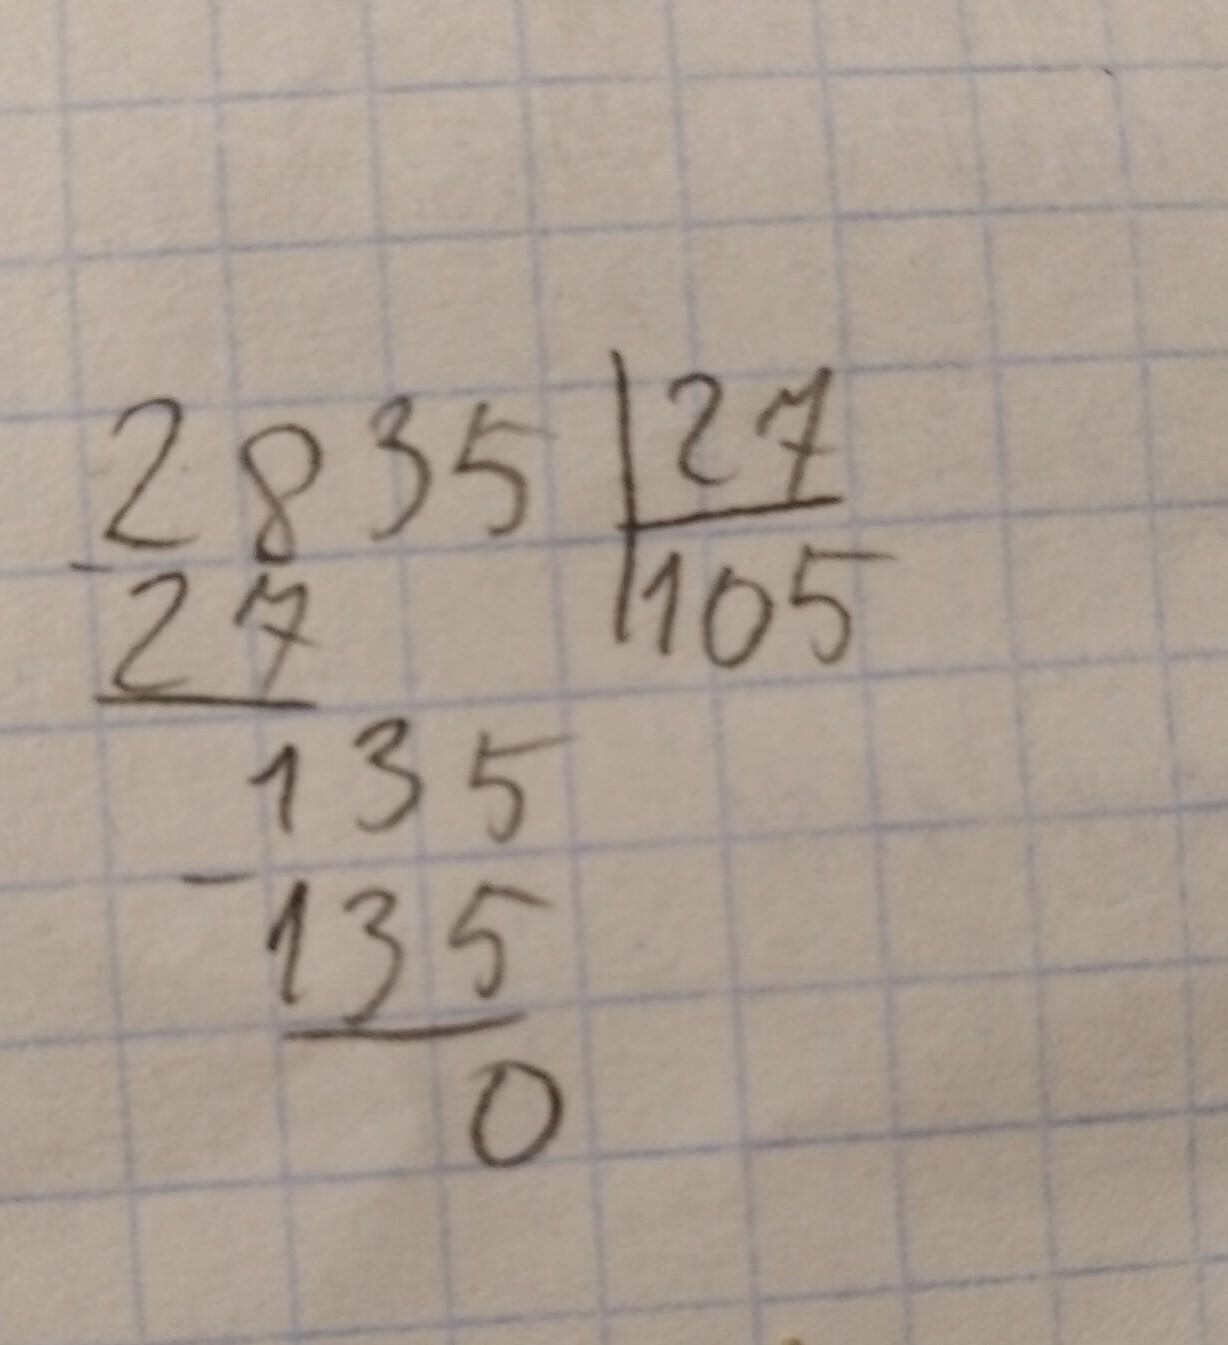 2835 | 27
- 27 | 105
135
- 135
0